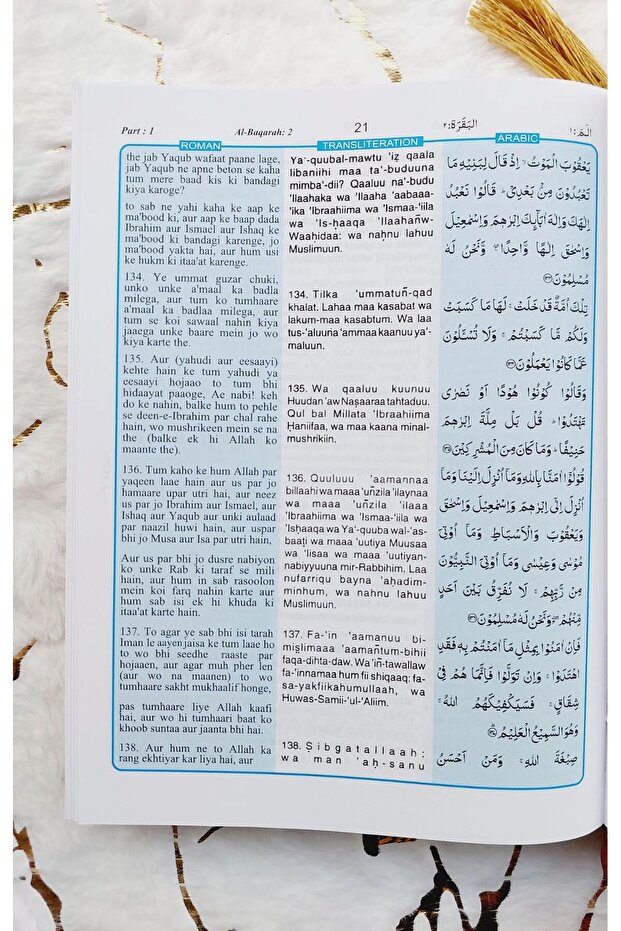 Part : 1
Al-Baqarah: 2
21
البَقَرَة:٢
الٓمّٓ:١
ROMAN
the jab Yaqub wafaat paane lage,
jab Yaqub ne apne beton se kaha
tum mere baad kis ki bandagi
kiya karoge?
to sab ne yahi kaha ke aap ke
ma'bood ki, aur aap ke baap dada
Ibrahim aur Ismael aur Ishaq ke
ma'bood ki bandagi karenge, jo
ma'bood yakta hai, aur hum usi
ke hukm ki itaa'at karenge.
134. Ye ummat guzar chuki,
unko unke a'maal ka badla
milega, aur tum ko tumhaare
a'maal ka badlaa milega, aur
tum se koi sawaal nahin kiya
jaaega unke baare mein jo wo
kiya karte the.
135. Aur (yahudi aur eesaayi)
kehte hain ke tum yahudi ya
eesaayi hojaao to tum bhi
hidaayat paaoge, Ae nabi! keh
do ke nahin, balke hum to pehle
se deen-e-Ibrahim par chal rahe
hain, wo mushrikeen mein se na
the (balke ek hi Allah ko
maante the).
136. Tum kaho ke hum Allah par
yaqeen laae hain aur us par jo
hamaare upar utri hai, aur neez
us par jo Ibrahim aur Ismael, aur
Ishaq aur Yaqub aur unki aulaad
par naazil huwi hain, aur uspar
bhi jo Musa aur Isa par utri hain,
Aur us par bhi jo dusre nabiyon
ko unke Rab ki taraf se mili
hain, aur hum in sab rasoolon
mein koi farq nahin karte aur
hum sab isi ek hi khuda ki
itaa'at karte hain.
137. To agar ye sab bhi isi tarah
Iman le aayen jaisa ke tum laae ho
to wo bhi seedhe raaste par
hojaaen, aur agar muh pher len
(aur wo na maanen) to wo
tumhaare sakht mukhaalif honge,
pas tumhaare liye Allah kaafi
hai, aur wo hi tumhaari baat ko
khoob suntaa aur jaanta bhi hai.
138. Aur hum ne to Allah ka
rang ekhtiyar kar liya hai, aur
TRANSLITERATION
Ya'-quubal-mawtu 'iẓ qaala
libaniihi maa ta'-buduuna
mimba'-dii? Qaaluu na'-budu
'Ilaahaka wa 'Ilaaha 'aabaaa-
'ika 'Ibraahiima wa 'Ismaa-'iila
wa 'Is-ḥaaqa 'Ilaahañw-
Waaḥidaa: wa naḥnu lahuu
Muslimuun.
134. Tilka 'ummatuñ-qad
khalat. Lahaa maa kasabat wa
lakum-maa kasabtum. Wa laa
tus-'aluuna 'ammaa kaanuu ya'-
maluun.
135. Wa qaaluu kuunuu
Huudan 'aw Naṣaaraa tahtaduu.
Qul bal Millata 'Ibraahiima
Ḥaniifaa, wa maa kaana minal-
mushrikiin.
136. Quuluuu 'aamannaa
billaahi wa maaa 'uñzila 'ilaynaa
wa maaa 'uñzila 'ilaaa
'Ibraahiima wa 'Ismaa-'iila wa
'Isḥaaqa wa Ya'-quuba wal-'as-
baaṭi wa maaa 'uutiya Muusaa
wa 'Iisaa wa maaa 'uutiyan-
nabiyyuuna mir-Rabbihim. Laa
nufarriqu bayna 'aḥadim-
minhum, wa naḥnu lahuu
Muslimuun.
137. Fa-'in 'aamanuu bi-
mislimaaa 'aamañtum-bihii
faqa-dihta-daw. Wa 'iñ-tawallaw
fa-'innamaa hum fii shiqaaq: fa-
sa-yakfiikahumullaah, wa
Huwas-Samii-'ul-'Aliim.
138. Ṣibgatallaah:
wa man 'aḥ-sanu
ARABIC
يَعْقُوْبَ الْمَوْتُ ۙ اِذْ قَالَ لِبَنِيْهِ مَا
تَعْبُدُوْنَ مِنْۢ بَعْدِيْ ؕ قَالُوْا نَعْبُدُ
اِلٰهَكَ وَاِلٰهَ اٰبَآئِكَ اِبْرٰهٖمَ وَاِسْمٰعِيْلَ
وَاِسْحٰقَ اِلٰهًا وَّاحِدًا ۚ وَّنَحْنُ لَهٗ
مُسْلِمُوْنَ ﴿۱۳۳﴾
تِلْكَ اُمَّةٌ قَدْ خَلَتْ ۚ لَهَا مَا كَسَبَتْ
وَلَكُمْ مَّا كَسَبْتُمْ ۚ وَلَا تُسْـَٔلُوْنَ
عَمَّا كَانُوْا يَعْمَلُوْنَ ﴿۱۳۴﴾
وَقَالُوْا كُوْنُوْا هُوْدًا اَوْ نَصٰرٰى
تَهْتَدُوْا ؕ قُلْ بَلْ مِلَّةَ اِبْرٰهٖمَ
حَنِيْفًا ؕ وَمَا كَانَ مِنَ الْمُشْرِكِيْنَ ﴿۱۳۵﴾
قُوْلُوْٓا اٰمَنَّا بِاللّٰهِ وَمَآ اُنْزِلَ اِلَيْنَا وَمَآ
اُنْزِلَ اِلٰٓى اِبْرٰهٖمَ وَاِسْمٰعِيْلَ وَاِسْحٰقَ
وَيَعْقُوْبَ وَالْاَسْبَاطِ وَمَآ اُوْتِيَ
مُوْسٰى وَعِيْسٰى وَمَآ اُوْتِيَ النَّبِيُّوْنَ
مِنْ رَّبِّهِمْ ۚ لَا نُفَرِّقُ بَيْنَ اَحَدٍ
مِّنْهُمْ ۫ وَنَحْنُ لَهٗ مُسْلِمُوْنَ ﴿۱۳۶﴾
فَاِنْ اٰمَنُوْا بِمِثْلِ مَآ اٰمَنْتُمْ بِهٖ فَقَدِ
اهْتَدَوْا ۚ وَاِنْ تَوَلَّوْا فَاِنَّمَا هُمْ فِيْ
شِقَاقٍ ۚ فَسَيَكْفِيْكَهُمُ اللّٰهُ ۚ
وَهُوَ السَّمِيْعُ الْعَلِيْمُ ﴿۱۳۷﴾
صِبْغَةَ اللّٰهِ ۚ وَمَنْ اَحْسَنُ